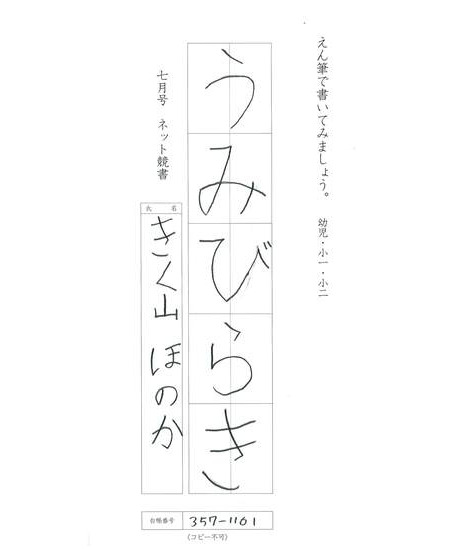 えん筆で書いてみましょう。 幼児・小一・小二
うみびらき
七月号 ネット競書
氏名
きく山 ほのか
台帳番号 357-1161
(コピー不可)